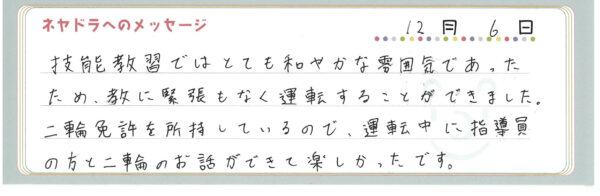 ネヤドラへのメッセージ 12月 6日
技能教習ではとても和やかな雰囲気であった
ため、教に緊張もなく運転することができました。
二輪免許を所持しているので、運転中に指導員
の方と二輪のお話ができて楽しかったです。